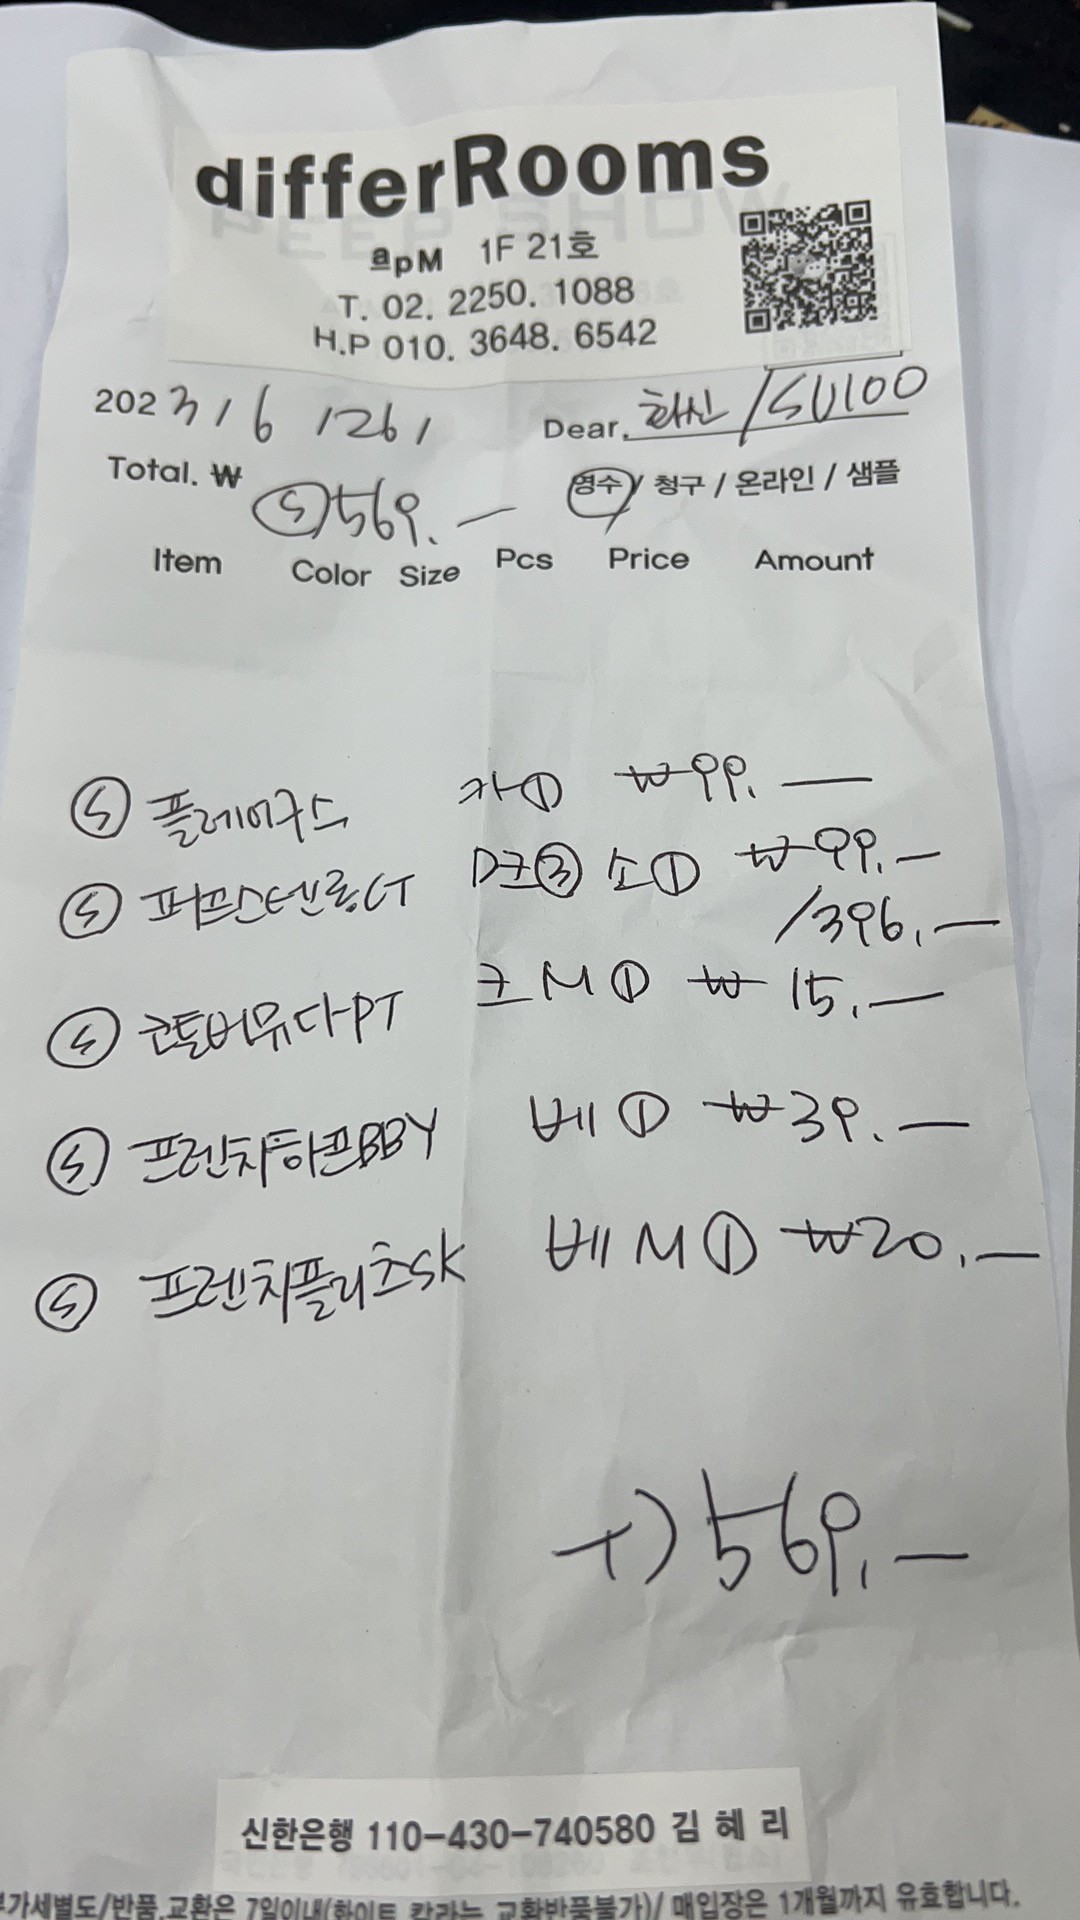 differRooms
apM 1F 21호
T. 02. 2250. 1088
H.P 010. 3648. 6542
2023 / 6 / 26 /
Dear. 화신 / SU100
Total. ₩ Ⓢ 569. —
영수 / 청구 / 온라인 / 샘플
Item Color Size Pcs Price Amount
Ⓢ 플레어구스 카 ① ₩ 99. —
Ⓢ 퍼프스텐롱CT D크 ③ 소 ① ₩ 99. —
/ 396. —
Ⓢ 코튼버뮤다PT 크 M ① ₩ 15. —
Ⓢ 프렌치하프BBY 베 ① ₩ 39. —
Ⓢ 프렌치플리츠SK 베 M ① ₩ 20. —
+) 569. —
신한은행 110-430-740580 김 혜 리
부가세별도/반품,교환은 7일이내(화이트 칼라는 교환반품불가)/ 매입장은 1개월까지 유효합니다.